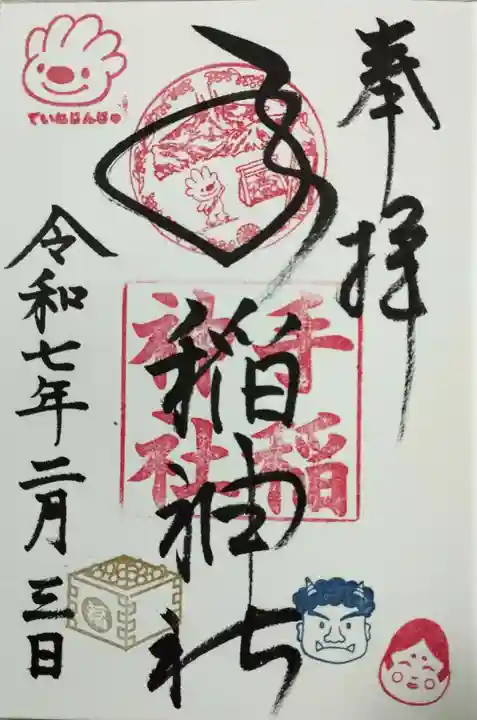 奉拝
手稲神社
手稲
神社
ていぬばんば
令和七年二月三日